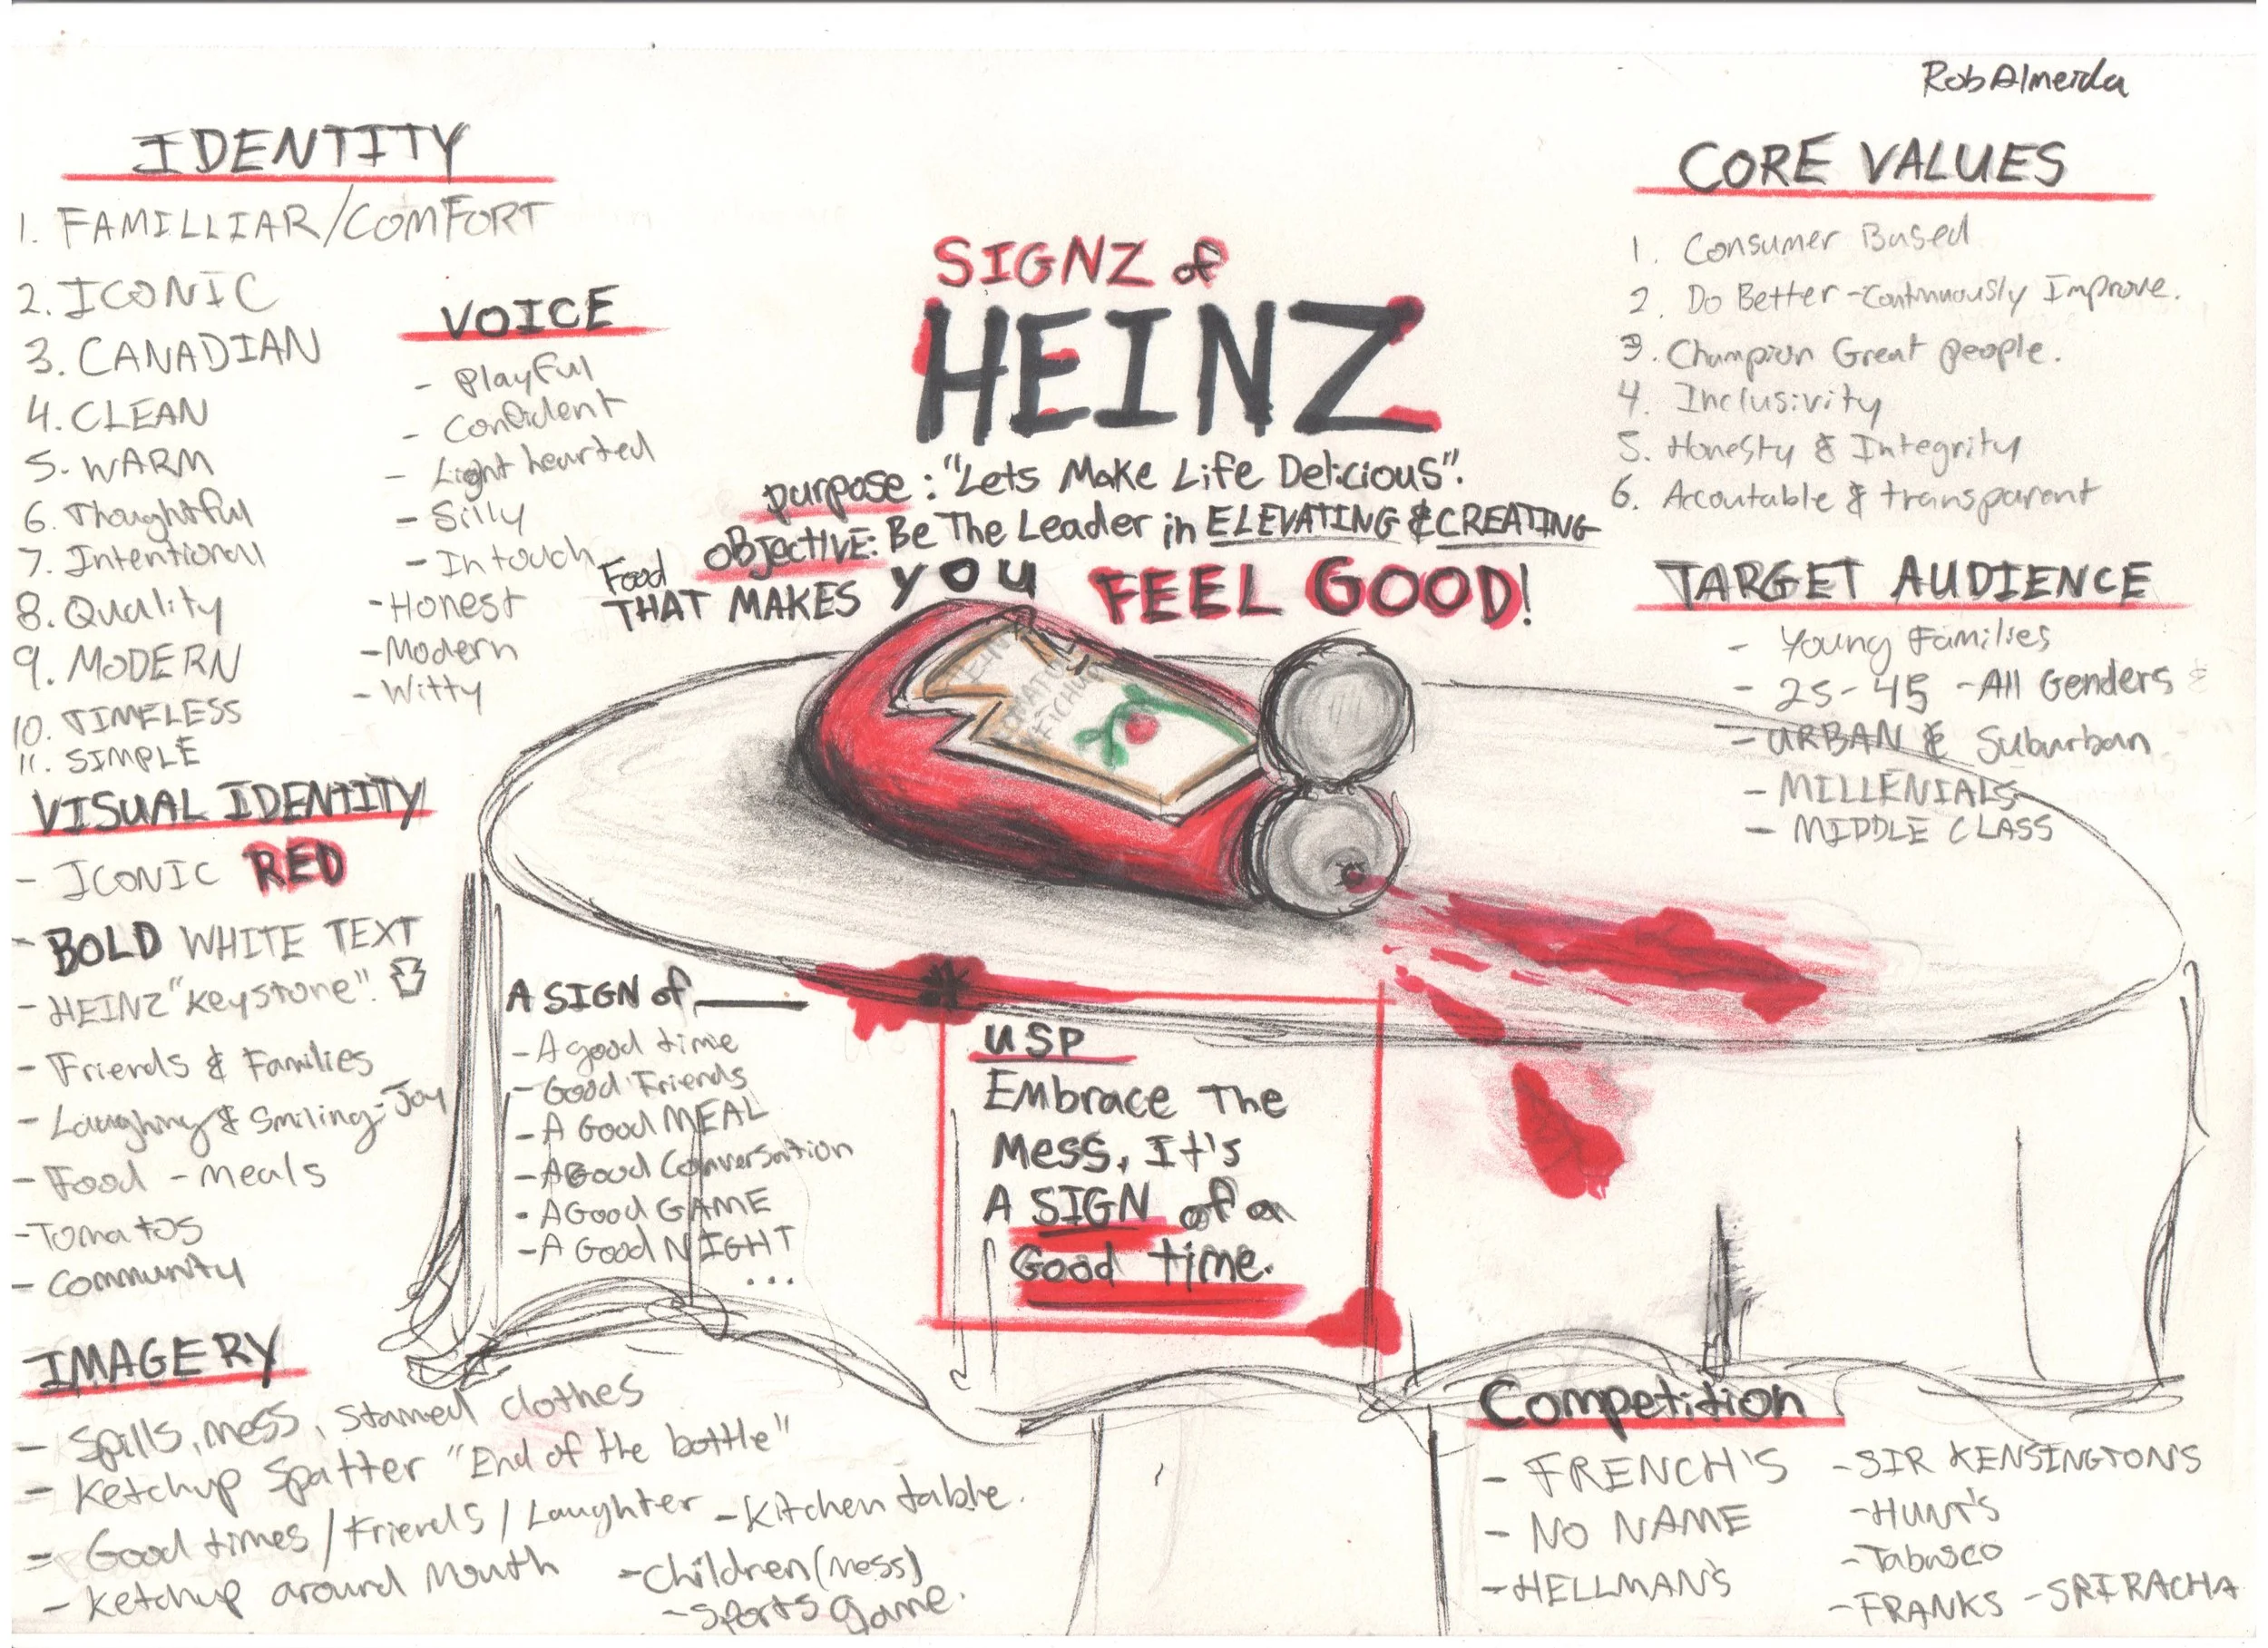 Rob Almeida
IDENTITY
1. FAMILLIAR/COMFORT
2. ICONIC
3. CANADIAN
4. CLEAN
5. WARM
6. Thoughtful
7. Intentional
8. Quality
9. MODERN
10. TIMELESS
11. SIMPLE
VOICE
- Playful
- Confident
- Light hearted
- Silly
- In touch
- Honest
- Modern
- Witty
SIGNZ of
HEINZ
purpose: "Lets Make Life Delicious".
OBJECTIVE: Be The Leader in ELEVATING & CREATING
Food
THAT MAKES YOU FEEL GOOD!
TOMATO
KETCHUP
CORE VALUES
1. Consumer Based
2. Do Better - Continuously Improve.
3. Champion Great people.
4. Inclusivity
5. Honesty & Integrity
6. Accoutable & transparent
TARGET AUDIENCE
- Young Families
- 25-45 - All Genders &
- URBAN & Suburban
- MILLENIALS
- MIDDLE CLASS
VISUAL IDENTITY
- ICONIC RED
- BOLD WHITE TEXT
- HEINZ "Keystone".
- Friends & Families
- Laughing & Smiling - Joy
- Food - meals
- Tomatos
- Community
A SIGN of
- A good time
- Good Friends
- A Good MEAL
- A Good Conversation
- A Good GAME
- A Good NIGHT
...
USP
Embrace The
Mess, It's
A SIGN of a
Good time.
IMAGERY
- Spills, mess, stained clothes
- Ketchup Spatter "End of the bottle"
- Good times / Friends / Laughter
- Ketchup around Mouth
- Kitchen table.
- Children (mess)
- Sports game.
Competition
- FRENCH'S
- NO NAME
- HELLMAN'S
- SIR KENSINGTONS
- HUNT'S
- Tabasco
- FRANKS - SRIRACHA